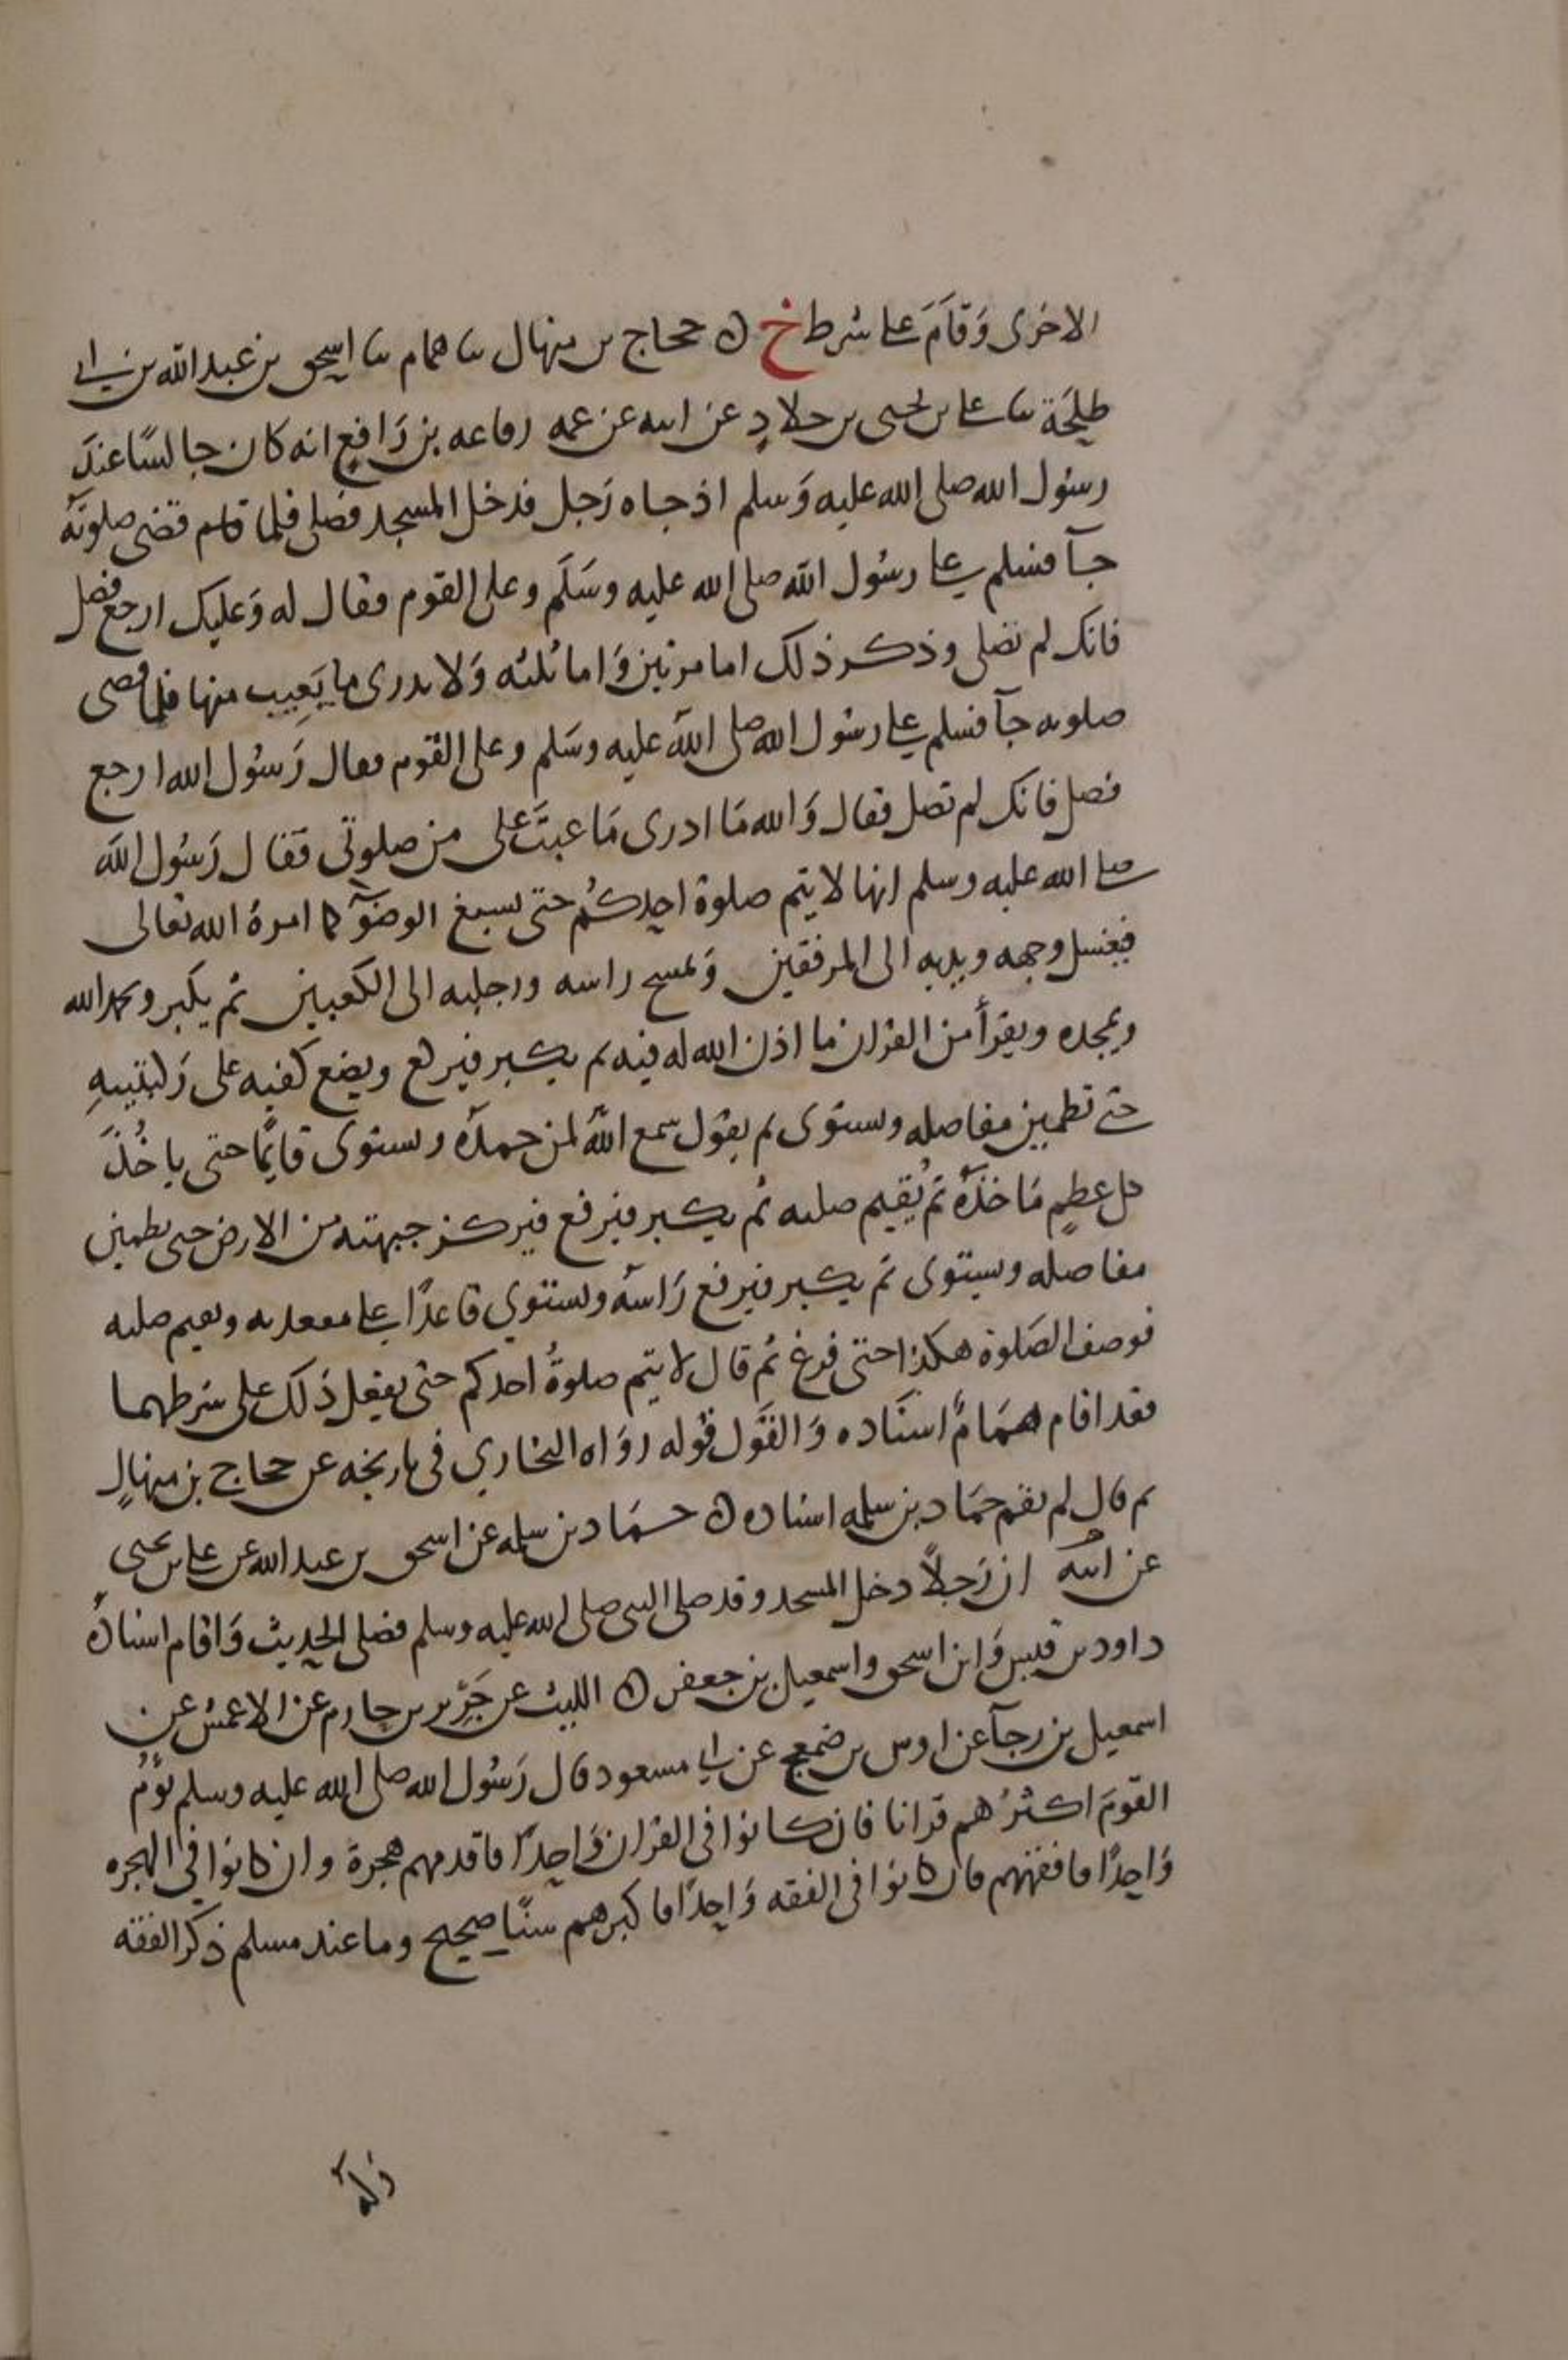 الاخرى وَقامَ على شرط خ ه حجاج بن منهال ثنا همام ثنا اسحق بن عبد الله بن ابي
طلحة ثنا على بن يحيى بن خلادٍ عن ابيه عن عمه رفاعه بن رَافعٍ انه كان جالسًا عندَ
رسُول الله صلى الله عليه وَسلم اذ جاه رَجل فدخل المسجد فصلى فلما قام قضى صلوتهُ
جآ فسلم على رسُول الله صلى الله عليه وسَلم وعلى القوم فقال له وَعليك ارجع فصل
فانك لم تصلى وذكر ذلك اما مرتين وَاما ثلثه وَلا يدرى ما يَعِيب منها فلما قضى
صلوته جآ فسلم على رسُول الله صلى الله عليه وسَلم وعلى القوم فقال رَسُول الله ارجع
فصل فانك لم تصل فقال وَالله مَا ادرى مَا عبتَ على من صلوتى فقال رَسُول الله
صلى الله عليه وسلم انها لا يتم صلوة احدكُم حتى يسبغ الوضوٓء كما امرهُ الله تعالى
فيغسل وجهه ويديه الى المرفقين وَيمسح راسه ورجليه الى الكعبين ثم يكبر ويحمد الله
ويمجده ويقرأ من القران ما اذن الله له فيه ثم يكبر فيركع ويضع كفيه على رَكبتيهِ
حتى تطمين مفاصله ويستوى ثم يقول سمع اللهُ لمن حمدهُ ويستوى قايمًا حتى ياخُذَ
كل عظمٍ مَاخذَهُ ثم يُقيم صلبه ثم يكبر فيرفع فيركز جبهته من الارض حتى يطمين
مفاصله ويستوى ثم يكبر فيرفع رَاسهُ ويستوي قاعدًا على مقعدته ويقيم صلبه
فوصف الصَلوة هكذا حتى فرغ ثم قال لا يتم صلوةُ احدكم حتى يفعل ذلك على شرطهما
فقد اقام همَامٌ اسنَاده وَالقَول قوله روَاه البخاري فى تاريخه عن حجاج بن منهالٍ
ثم قال لم يقم حمَاد بن سلمه اسناده ه حمَاد بن سلمه عن اسحق بن عبد الله عن على بن يحيى
عن ابيه ان رَجلاً دخل المسجد وقد صلى النبى صلى الله عليه وسلم فصلى الحديث وَاقام اسنادهُ
داود بن قيس وَابن اسحق واسمعيل بن جعفر ه الليث عن جَرير بن حازم عن الاعمش عن
اسمعيل بن رجآ عن اوس بن ضمعج عن ابي مسعود قال رَسُول الله صلى الله عليه وسلم يؤمُ
القومَ اكثرُهم قرانا فان كانوا فى القران وَاحدًا فاقدمهم هجرة وان كانوا فى الهجره
وَاحدًا فافقههم فان كانوا فى الفقه وَاحدًا فاكبرهم سنًا صحيح وما عند مسلم ذكر الفقه